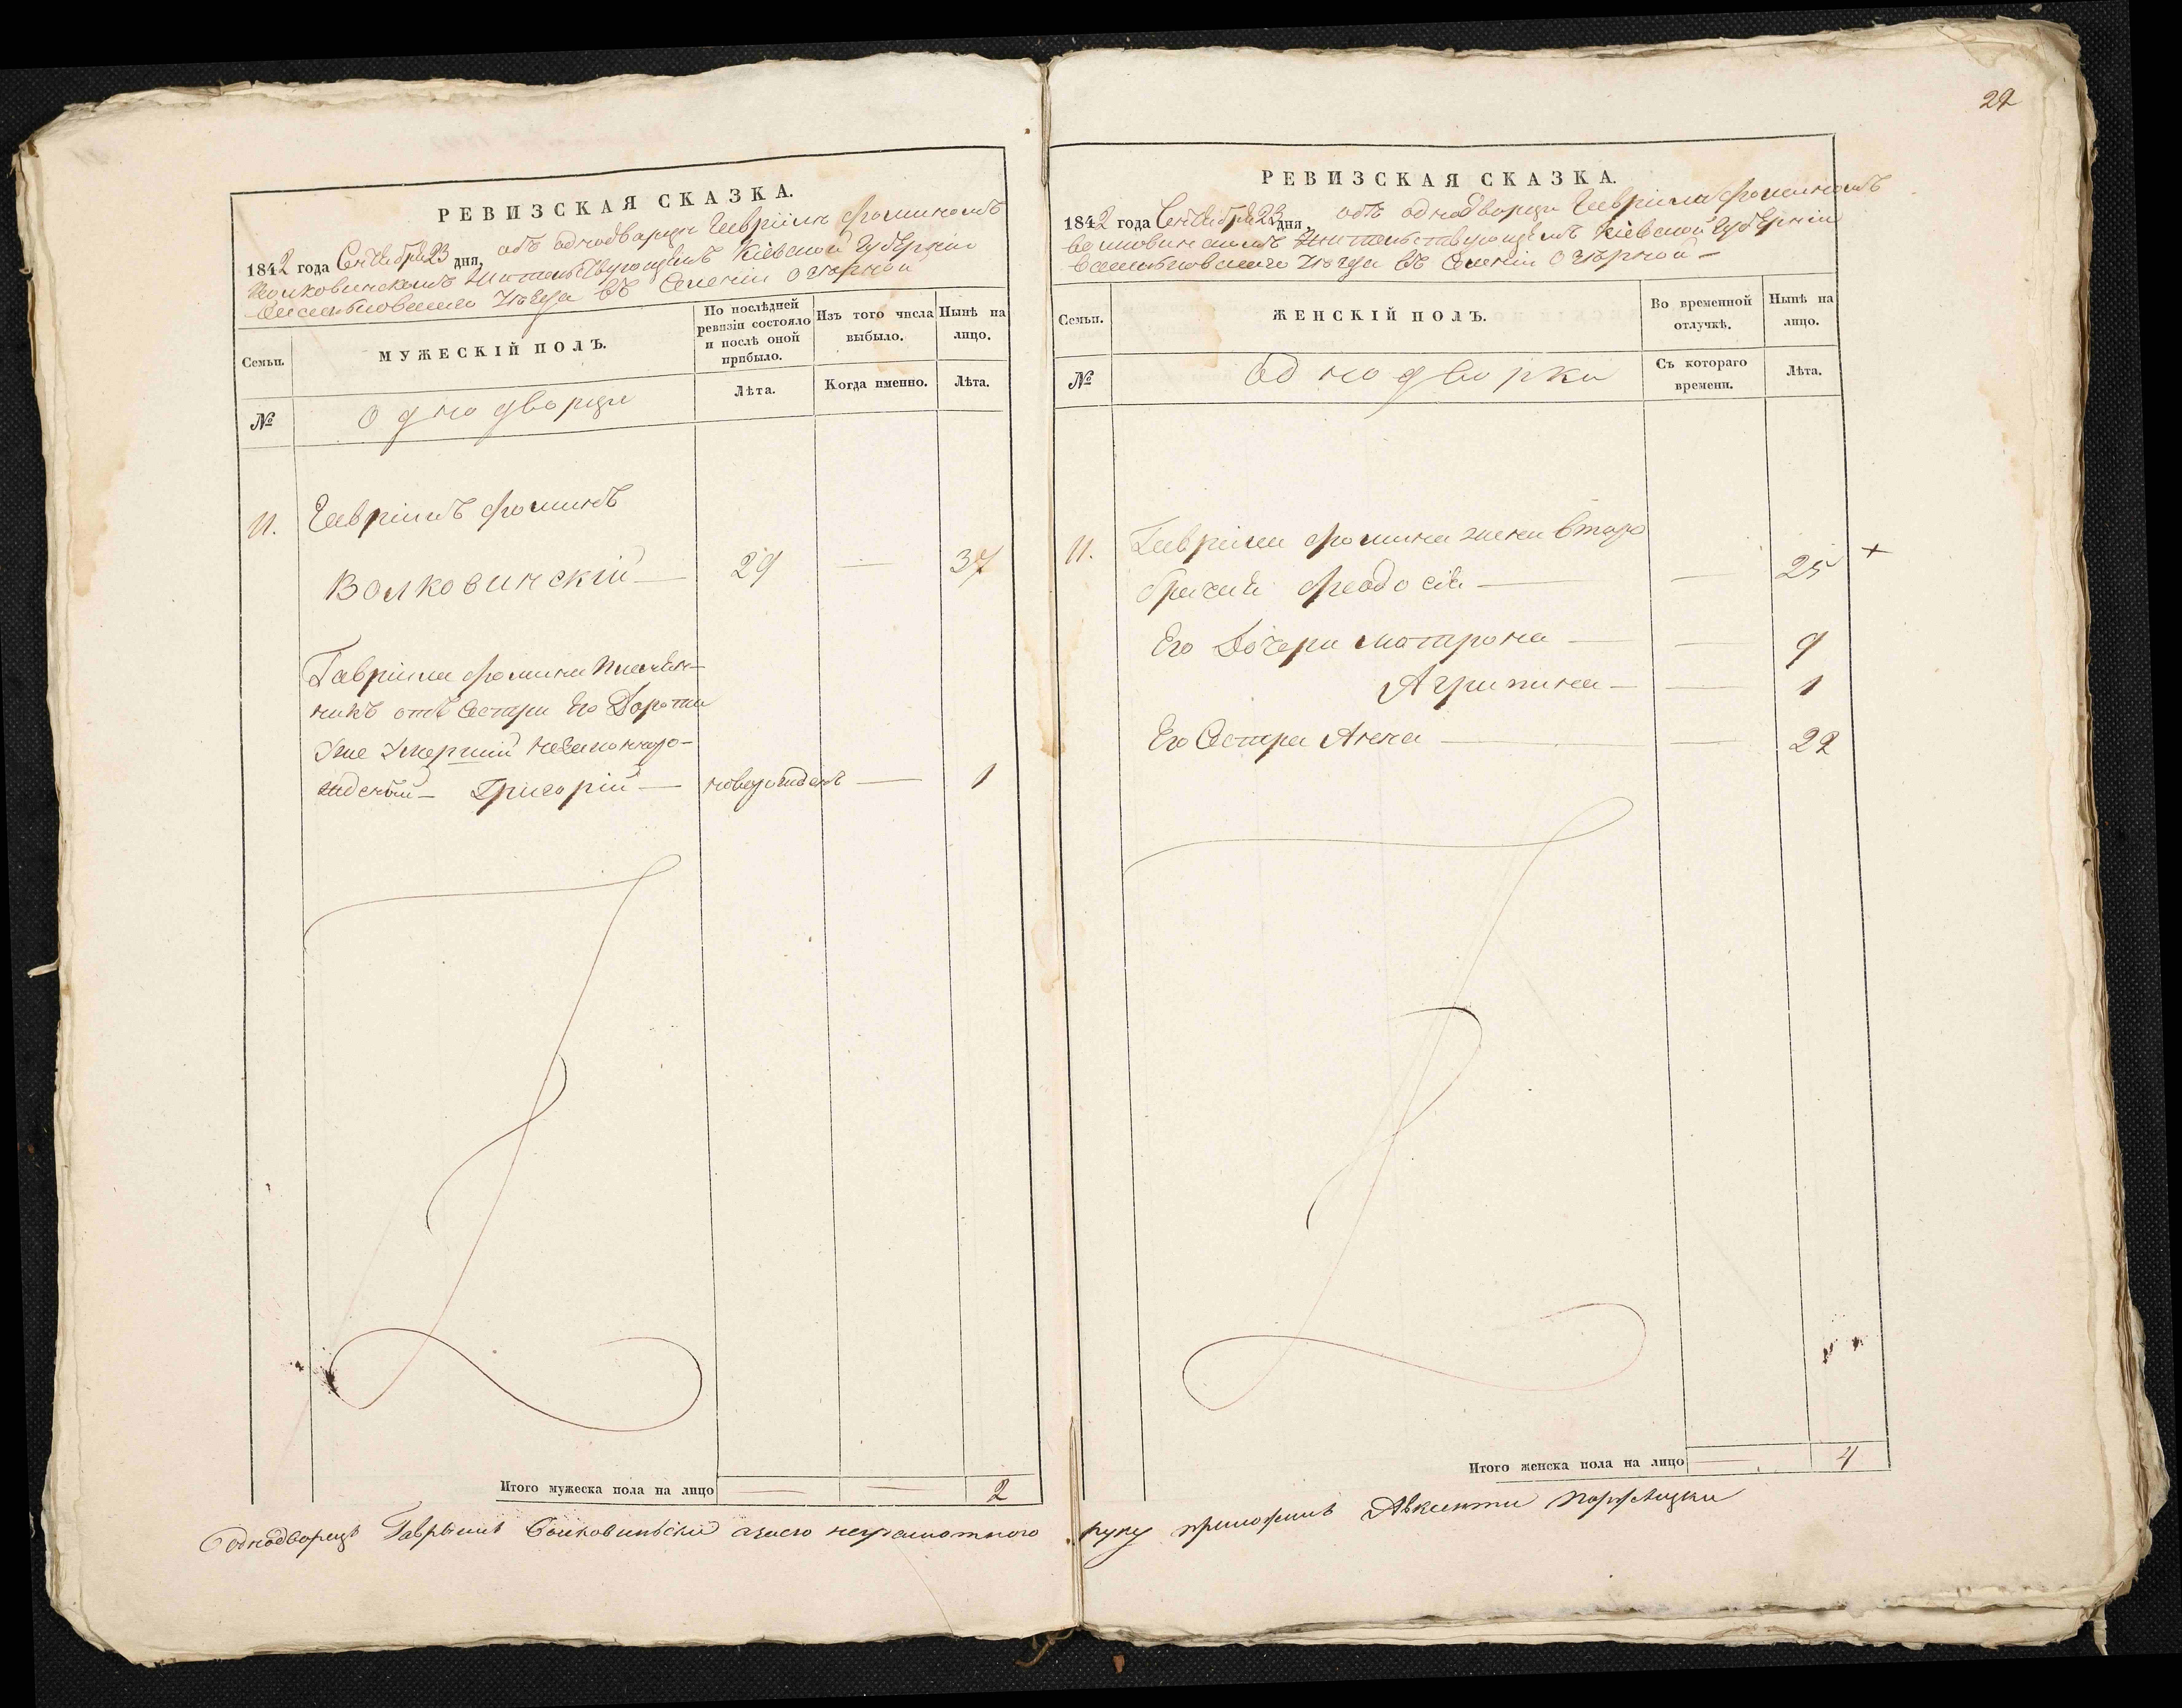 РЕВИЗСКАЯ СКАЗКА.
1842 года Сентября 23 дня, объ однодворци Гавріилѣ Фоминомъ
Волковинскомъ жительствующемъ Кіевской Губерніи
Васильковскаго уѣзда въ Селеніи Озѣрной
Семьи.
МУЖЕСКІЙ ПОЛЪ.
По послѣдней ревизіи состояло и послѣ оной прибыло.
Изъ того числа выбыло.
Нынѣ на лицо.
№
Однодворци
Лѣта.
Когда именно.
Лѣта.
11. Гавріилъ Фоминъ
Волковинскій — 29 — 37
Гавріила Фомина племян-
никъ отъ Сестри Его Дороти
уже умершій незаконнаро-
жденый — Григорій — новорожденъ — 1
Итого мужеска пола на лицо — — 2
29
РЕВИЗСКАЯ СКАЗКА.
1842 года Сентября 23 дня, объ однодворци Гавріила Фоминомъ
Волковинскомъ жительствующемъ Кіевской Губерніи
Васильковскаго уѣзда въ Селеніи Озѣрной —
Семьи.
ЖЕНСКІЙ ПОЛЪ.
Во временной отлучкѣ.
Нынѣ на лицо.
№
Однодворки
Съ котораго времени.
Лѣта.
11. Гавріила Фомина жена второ
брачная Феодосія — — 25 +
Его Дочери Матрона — — 9
Агрипина — — 1
Его Сестра Анна — — 22
Итого женска пола на лицо — 4
Однодворецъ Гаврыилъ Волковиньски а за его неграмотного руку приложилъ Авксенти